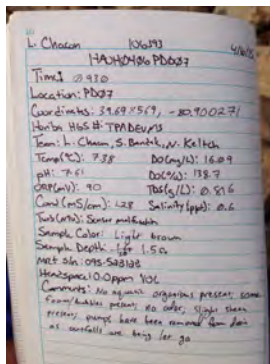 L. Chacon 106393 4/6/23
HAOH0406PD007
Time: 0930
Location: PD07
Coordinates: 39.698569, -80.900271
Horiba HGS #: TPADEVMS
Team: L. Chacon, S. Bantek, N. Keltch
Temp(°C): 7.38 DO(mg/L): 16.09
pH: 7.61 DO(%): 138.7
ORP(mV): 90 TDS(g/L): 0.816
Cond (mS/cm): 1.28 Salinity(ppt): 0.6
Turb(NTU): Sensor malfunction
Sample Color: Light brown
Sample Depth: 1.5 ft
Headspace: 0.0 ppm VOC
Comments: No aquatic organisms present, some
foam/bubbles present, no odor, slight sheen
present, pumps have been removed from dam
as outfalls are being let go